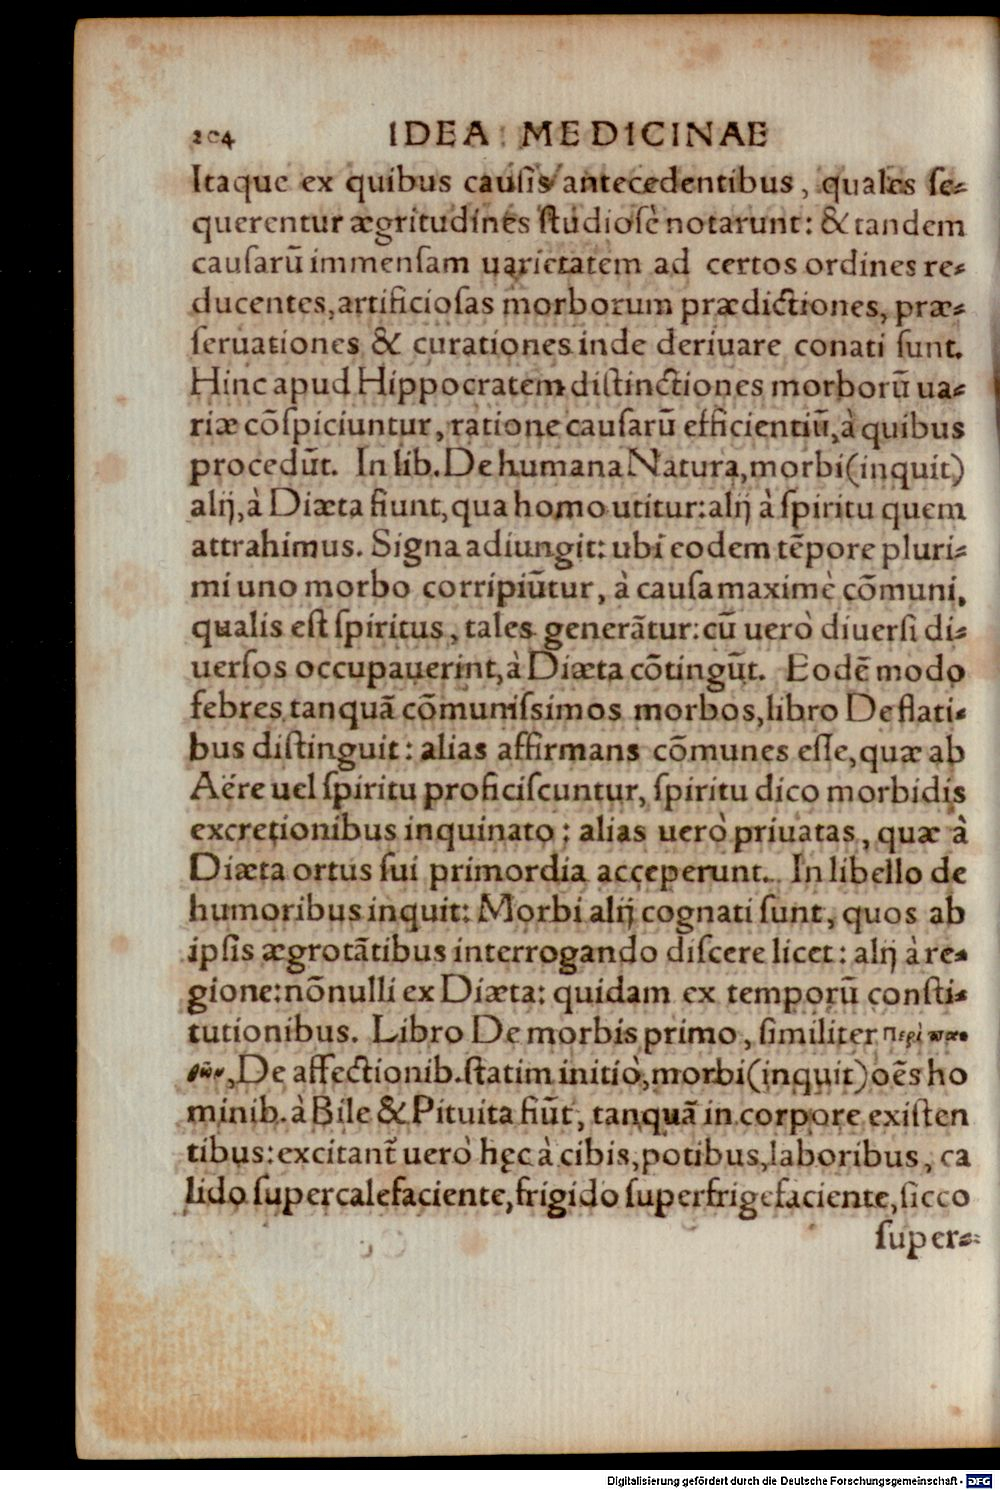 204 IDEA MEDICINAE
Itaque ex quibus causis antecedentibus, quales se-
querentur ægritudines studiosè notarunt: & tandem
causarũ immensam uarietatem ad certos ordines re-
ducentes, artificiosas morborum prædictiones, præ-
seruationes & curationes inde deriuare conati sunt.
Hinc apud Hippocratem distinctiones morborũ ua-
riæ cõspiciuntur, ratione causarũ efficientiũ, à quibus
procedũt. In lib. De humana Natura, morbi (inquit)
alij, à Diæta fiunt, qua homo utitur: alij à spiritu quem
attrahimus. Signa adiungit: ubi eodem tẽpore pluri-
mi uno morbo corripiũtur, à causa maximè cõmuni,
qualis est spiritus, tales generãtur: cũ uerò diuersi di-
uersos occupauerint, à Diæta cõtingũt. Eodẽ modo
febres tanquã cõmunissimos morbos, libro De flati-
bus distinguit: alias affirmans cõmunes esse, quæ ab
Aëre uel spiritu proficiscuntur, spiritu dico morbidis
excretionibus inquinato: alias uerò priuatas, quæ à
Diæta ortus sui primordia acceperunt. In libello de
humoribus inquit: Morbi alij cognati sunt, quos ab
ipsis ægrotãtibus interrogando discere licet: alij à re-
gione: nõnulli ex Diæta: quidam ex temporũ consti-
tutionibus. Libro De morbis primo, similiter Περὶ πα-
θῶν, De affectionib. statim initiò, morbi (inquit) oẽs ho
minib. à Bile & Pituita fiũt, tanquã in corpore existen
tibus: excitant̃ uerò hęc à cibis, potibus, laboribus, ca
lido supercalefaciente, frigido superfrigefaciente, sicco
super-
Digitalisierung gefördert durch die Deutsche Forschungsgemeinschaft - DFG